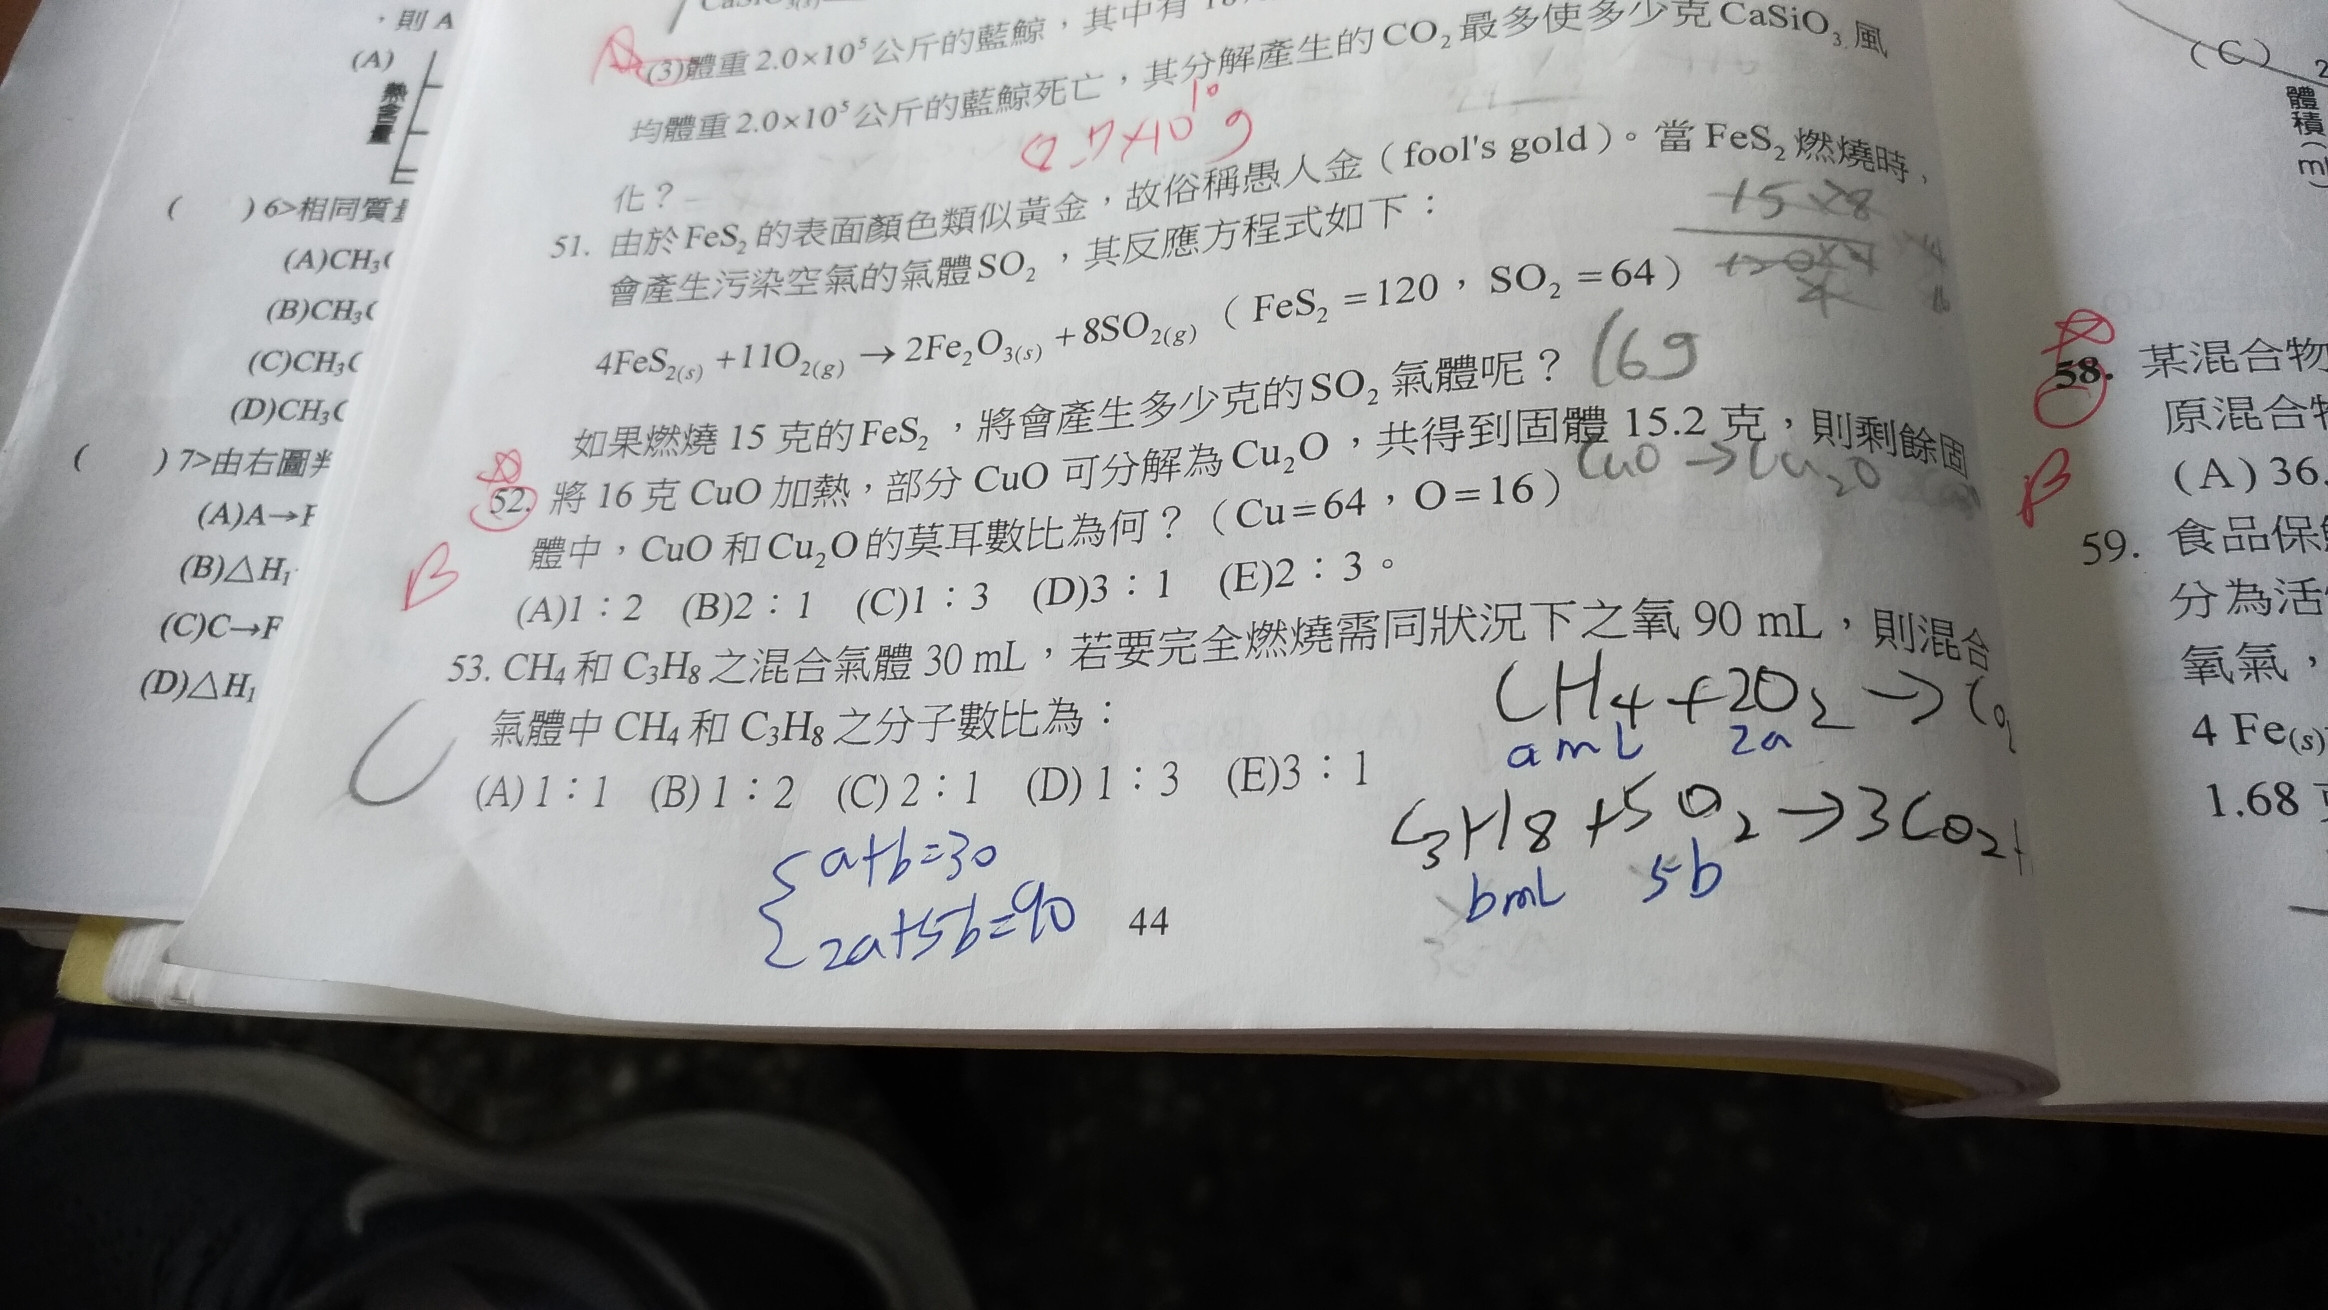 ，則A
(A)
熱含量
( )6>相同質
(A)CH₃
(B)CH₃
(C)CH₃
(D)CH₃
( )7>由右圖
(A)A→F
(B)△H₁
(C)C→F
(D)△H₁
(3)體重2.0×10⁵公斤的藍鯨，其中有
均體重2.0×10⁵公斤的藍鯨死亡，其分解產生的CO₂最多使多少克CaSiO₃風
化？
10
51. 由於FeS₂的表面顏色類似黃金，故俗稱愚人金（fool's gold）。當FeS₂燃燒時，
會產生污染空氣的氣體SO₂，其反應方程式如下：
4FeS₂(s)+11O₂(g)→2Fe₂O₃(s)+8SO₂(g)（FeS₂=120，SO₂=64）
如果燃燒15克的FeS₂，將會產生多少克的SO₂氣體呢？ 16g
52. 將16克CuO加熱，部分CuO可分解為Cu₂O，共得到固體15.2克，則剩餘固
CuO→Cu₂O
體中，CuO和Cu₂O的莫耳數比為何？（Cu=64，O=16）
B
(A)1：2 (B)2：1 (C)1：3 (D)3：1 (E)2：3。
53. CH₄和C₃H₈之混合氣體30 mL，若要完全燃燒需同狀況下之氧90 mL，則混合
氣體中CH₄和C₃H₈之分子數比為：
C
(A) 1：1 (B) 1：2 (C) 2：1 (D) 1：3 (E)3：1
CH₄+2O₂→CO₂
a mL 2a
C₃H₈+5O₂→3CO₂+
b mL 5b
a+b=30
2a+5b=90
44
(C)
體積(ml)
58. 某混合物
原混合物
(A) 36.
B
59. 食品保
分為活
氧氣，
4 Fe(s)
1.68